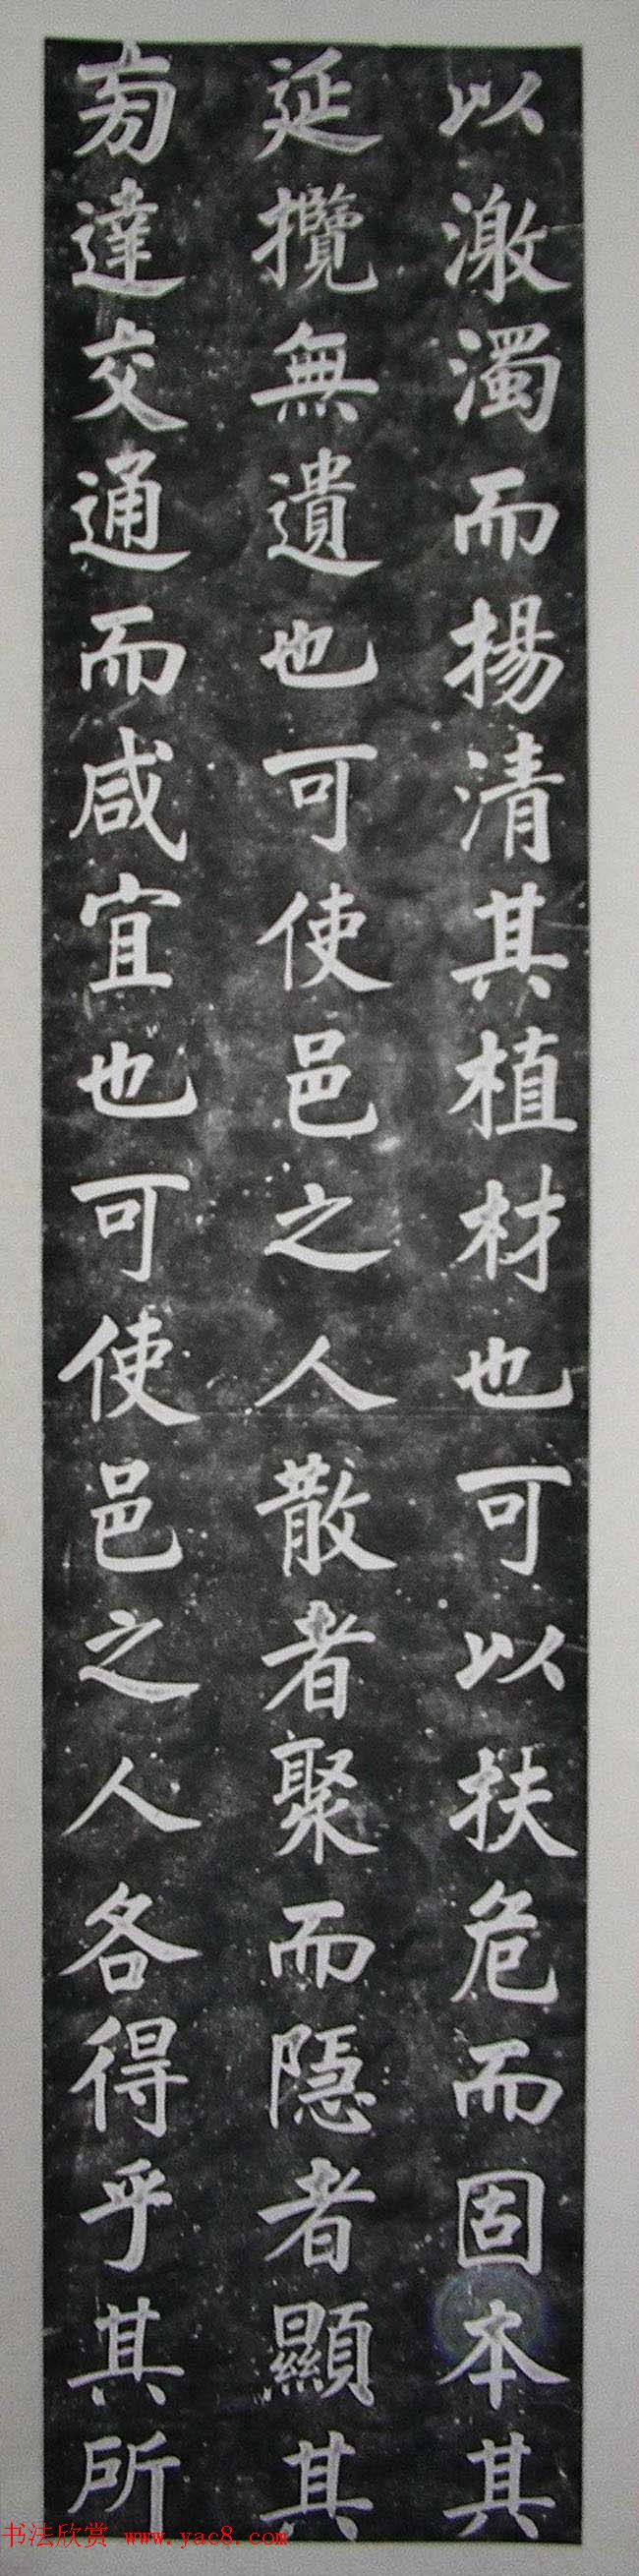 以激濁而揚清其植材也可以扶危而固本其
延攬無遺也可使邑之人散者聚而隱者顯其
旁達交通而咸宜也可使邑之人各得乎其所
书法欣赏 www.yac8.com